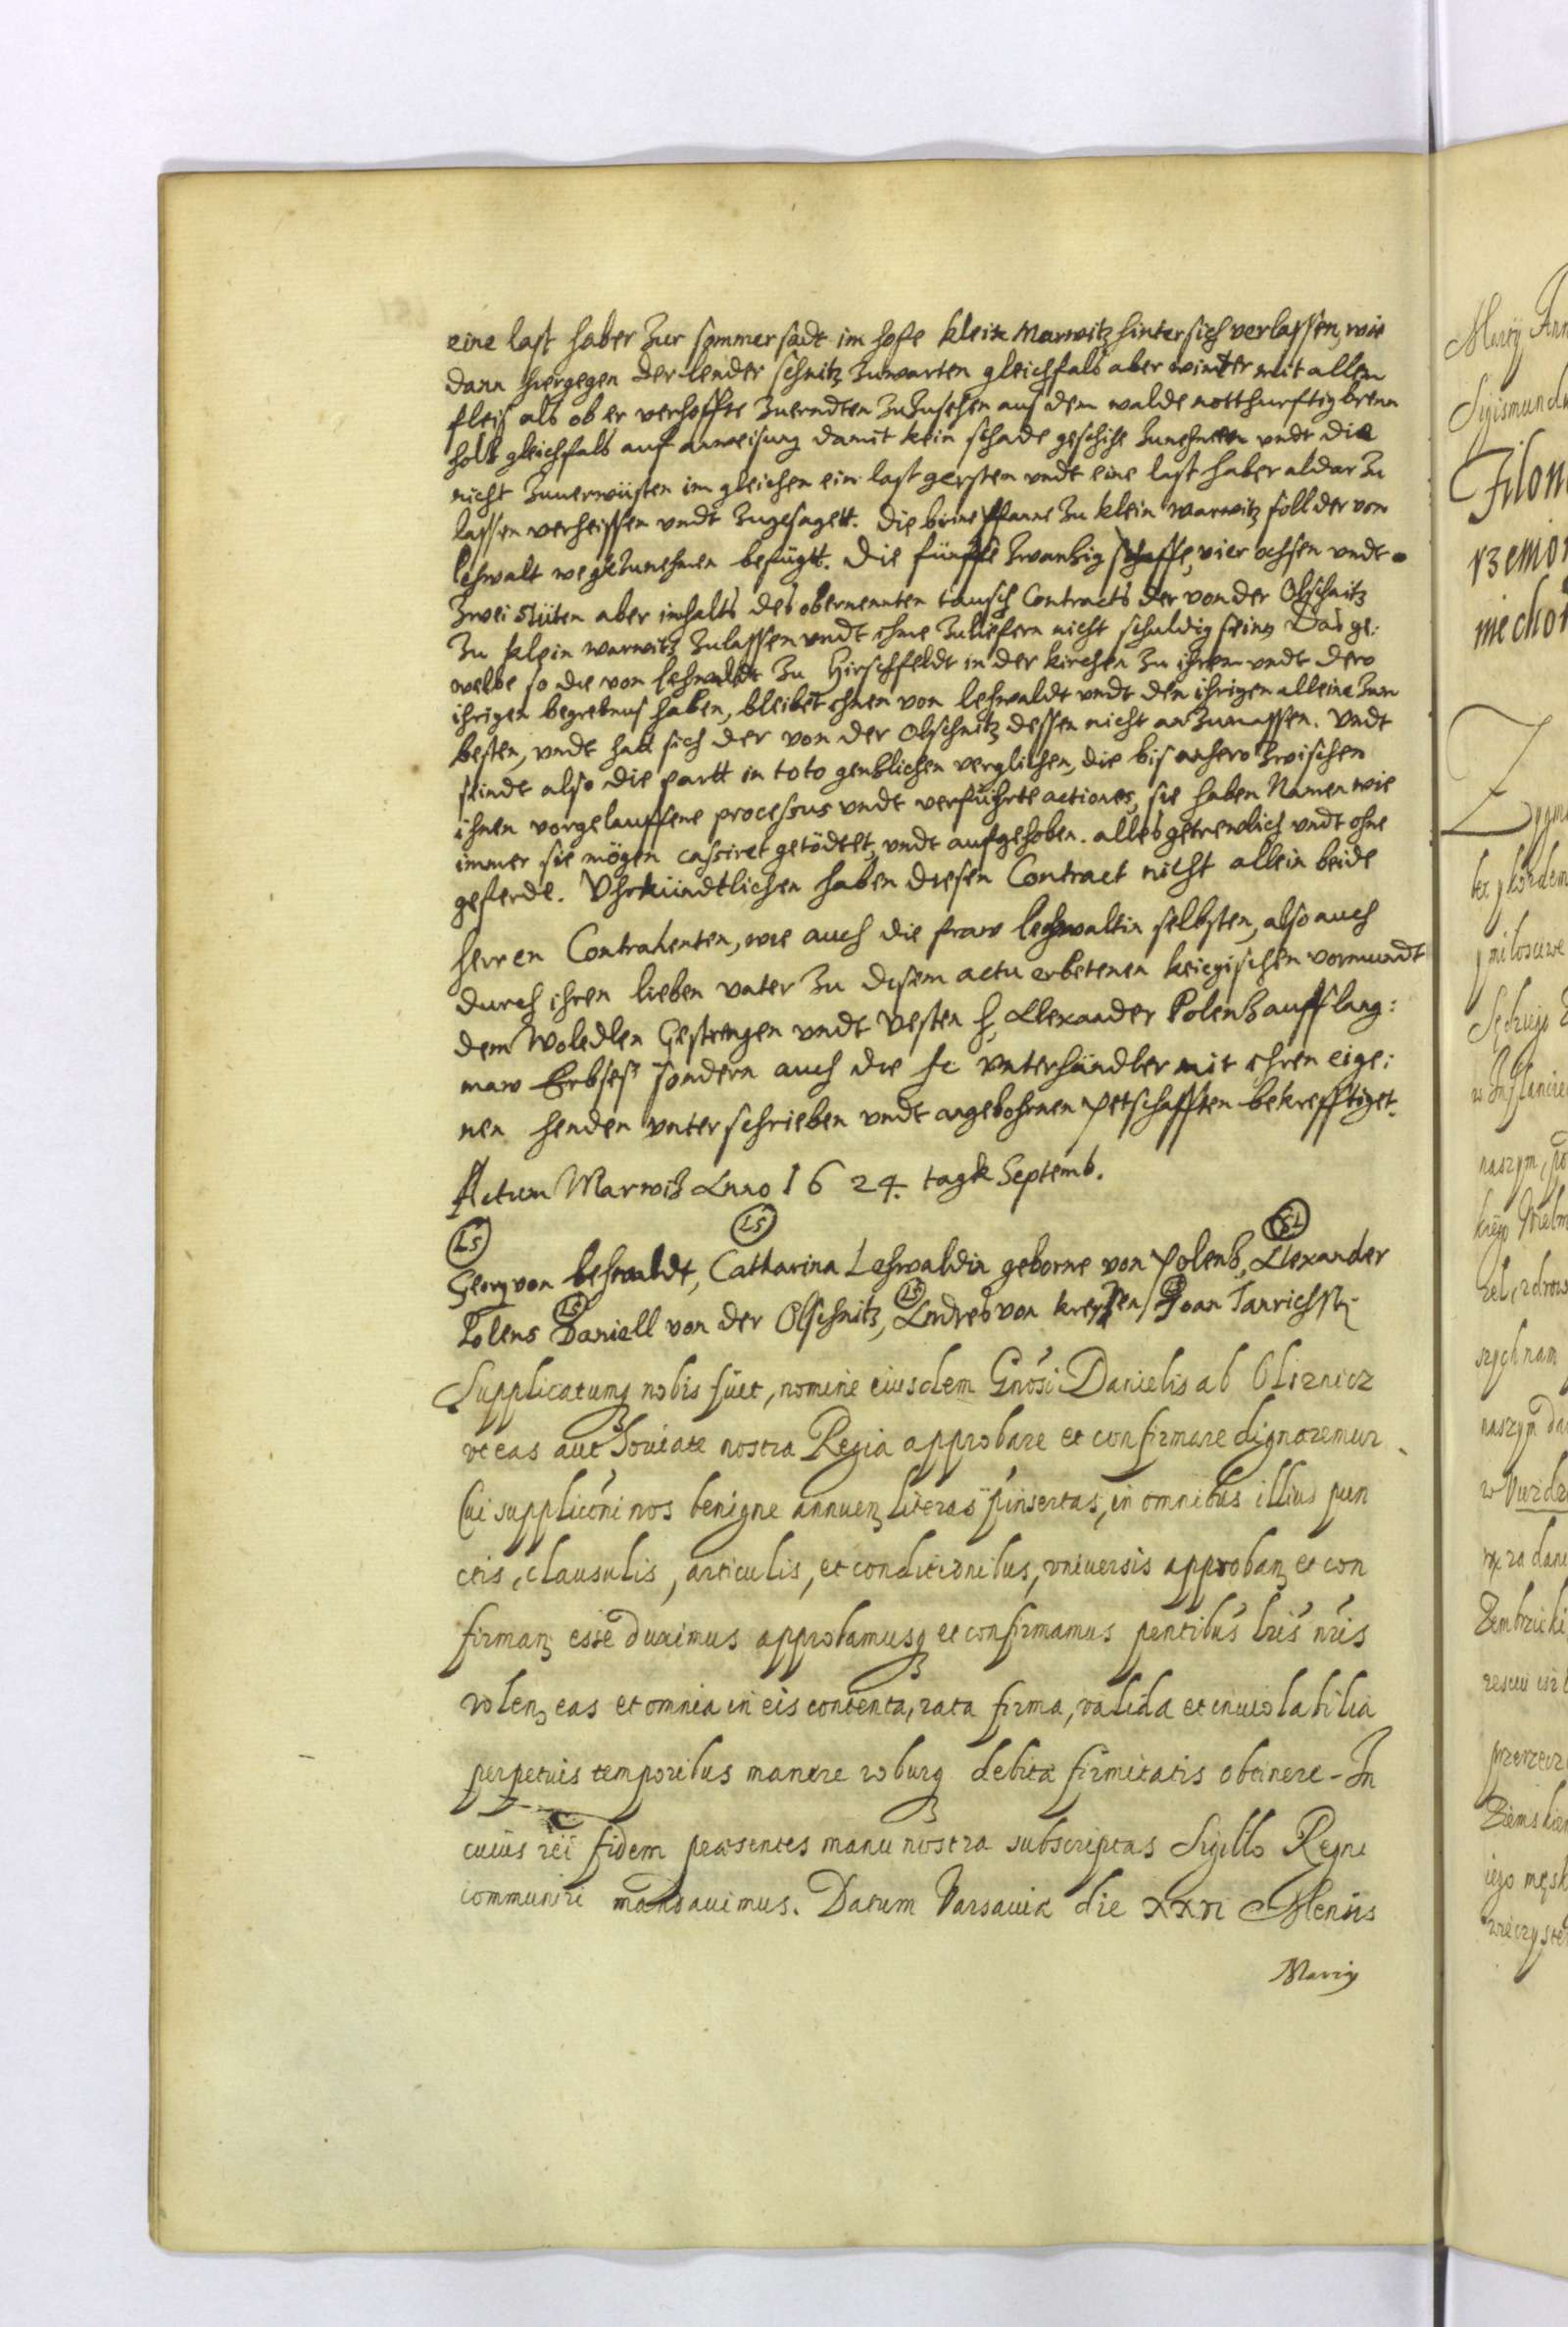 eine last haber zur sommersadt im hofe klein Marwitz hinter sich verlassen, wie
dann hiergegen der lender schnitz zuwarten gleichfals aber winter mit allen
fleis als ob er verhoffte zuerndten zuzusehen aus dem walde notthurftig brenn
holtz gleichfals auf anweisung damit kein schade geschihe zunehmen undt die
nicht zuuerwüsten im gleichen ein last gersten undt eine last haber aldar zu
lassen verheissen undt zugesagett. die pfanne zu klein warwitz soll der von
lehwalt wegzunehmen befügtt. die fünffe zwanzig schaffe, vier ochsen undt
zwei stüten aber inhalts des obernennten tausch Contracts der von der Olschnitz
zu klein warwitz zulassen undt ihme zuliefern nicht schuldig sein Das ge:
welbe so die von lehwaldt zu Hirschfeldt in der kirchen zu ihren undt dero
ihrigen begrebnus haben, bleibet ihnen von lehwaldt undt den ihrigen alleine zum
besten, undt hatt sich der von der Olschnitz dessen nicht anzumassen. Undt
sindt also die partt in toto genzlichen verglichen, die bis anhero zwischen
ihnen vorgelauffene processus undt verführte actiones, sie haben Namen wie
immer sie mögen cassiret getödtet, undt aufgehoben. alles getrewlich undt ohne
geferde. Uhrkündtlichen haben diesen Contract nicht allein beide
herren Contrahenten, wie auch die fraw lehwaltin selbsten, also auch
durch ihren lieben vater zu disem actu erbetenen kriegischen vormundt
dem Woledlen Gestrengen undt Vesten h. Alexander Polentz auff lang:
naw Erbsess sondern auch die hc unterhändler mit ihren eige:
nen henden unterschrieben undt angebohrnen petschafften bekrefftiget.
Actum Marwitz Anno 1624. tagk Septemb.
LS LS LS
Georg von lehwaldt, Catharina Lehwaldin geborne von Polentz, Alexander
LS LS LS
Polens Daniell von der Olschnitz, Andres von Joan
Supplicatumq nobis fuit, nomine eiusdem Gnosi Danielis ab Olsznicz
ut eas authoritate nostra Regia approbare et confirmare dignaremur
Cui supplicōni nos benigne annuen literas pinsertas, in omnibus illius pun
ctis, clausulis, articulis, et conditionibus, vniuersis approban et con
firman esse duximus approbamusq et confirmamus pentibus lris nris
volen eas et omnia in eis contenta, rata firma, valida et inuiolabilia
perpetuis temporibus manere roburq debitæ firmitatis obtinere - In
cuius rei fidem præsentes manu nostra subscriptas Sigillo Regni
communiri mandauimus. Datum Varsauiæ die XXVI Mensis
Marty